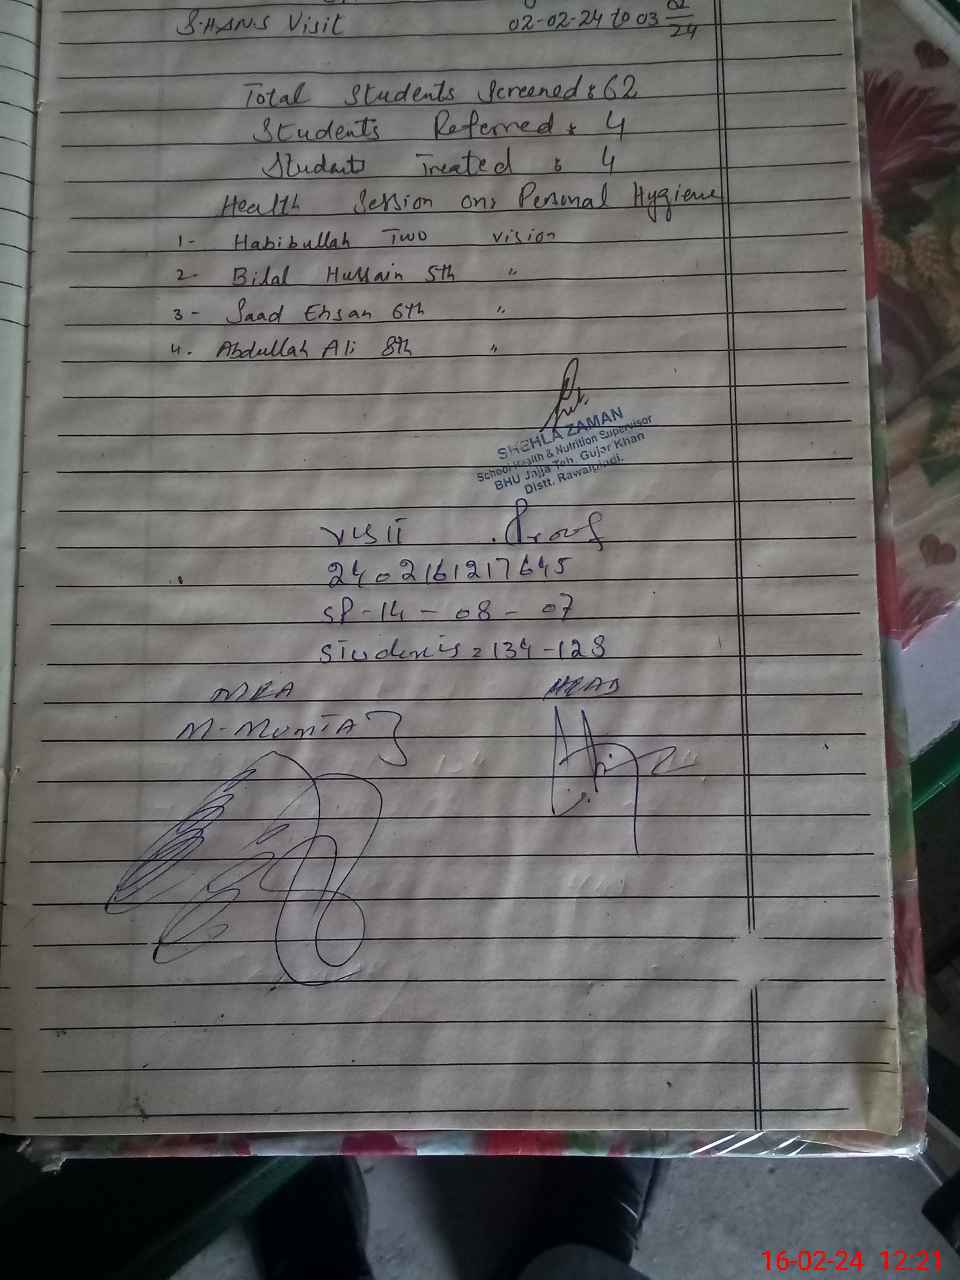 S.H&NS Visit 02-02-24 to 03 02/24
Total Students Screened : 62
Students Referred : 4
Students Treated : 4
Health Session on: Personal Hygiene
1- Habibullah Two vision
2- Bilal Hussain 5th "
3- Saad Ehsan 6th "
4. Abdullah Ali 8th "
SHEHLA ZAMAN
School Health & Nutrition Supervisor
BHU Jajja Teh. Gujar Khan
Distt. Rawalpindi.
Visit Proof
2402161217645
SP-14-08-07
Students = 134-128
MEA HEAD
M-Mumtaz
16-02-24 12:21